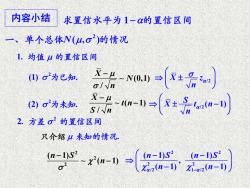 内容小结 求置信水平为 1−α的置信区间
一、单个总体N(μ,σ²)的情况
1. 均值 μ 的置信区间
(1) σ²为已知. (X̄−μ)/(σ/√n) ~ N(0,1) ⇒ (X̄ ± σ/√n z_{α/2})
(2) σ²为未知. (X̄−μ)/(S/√n) ~ t(n−1) ⇒ (X̄ ± S/√n t_{α/2}(n−1))
2. 方差 σ² 的置信区间
只介绍 μ 未知的情况.
(n−1)S²/σ² ~ χ²(n−1) ⇒ ((n−1)S²/χ²_{α/2}(n−1), (n−1)S²/χ²_{1−α/2}(n−1))